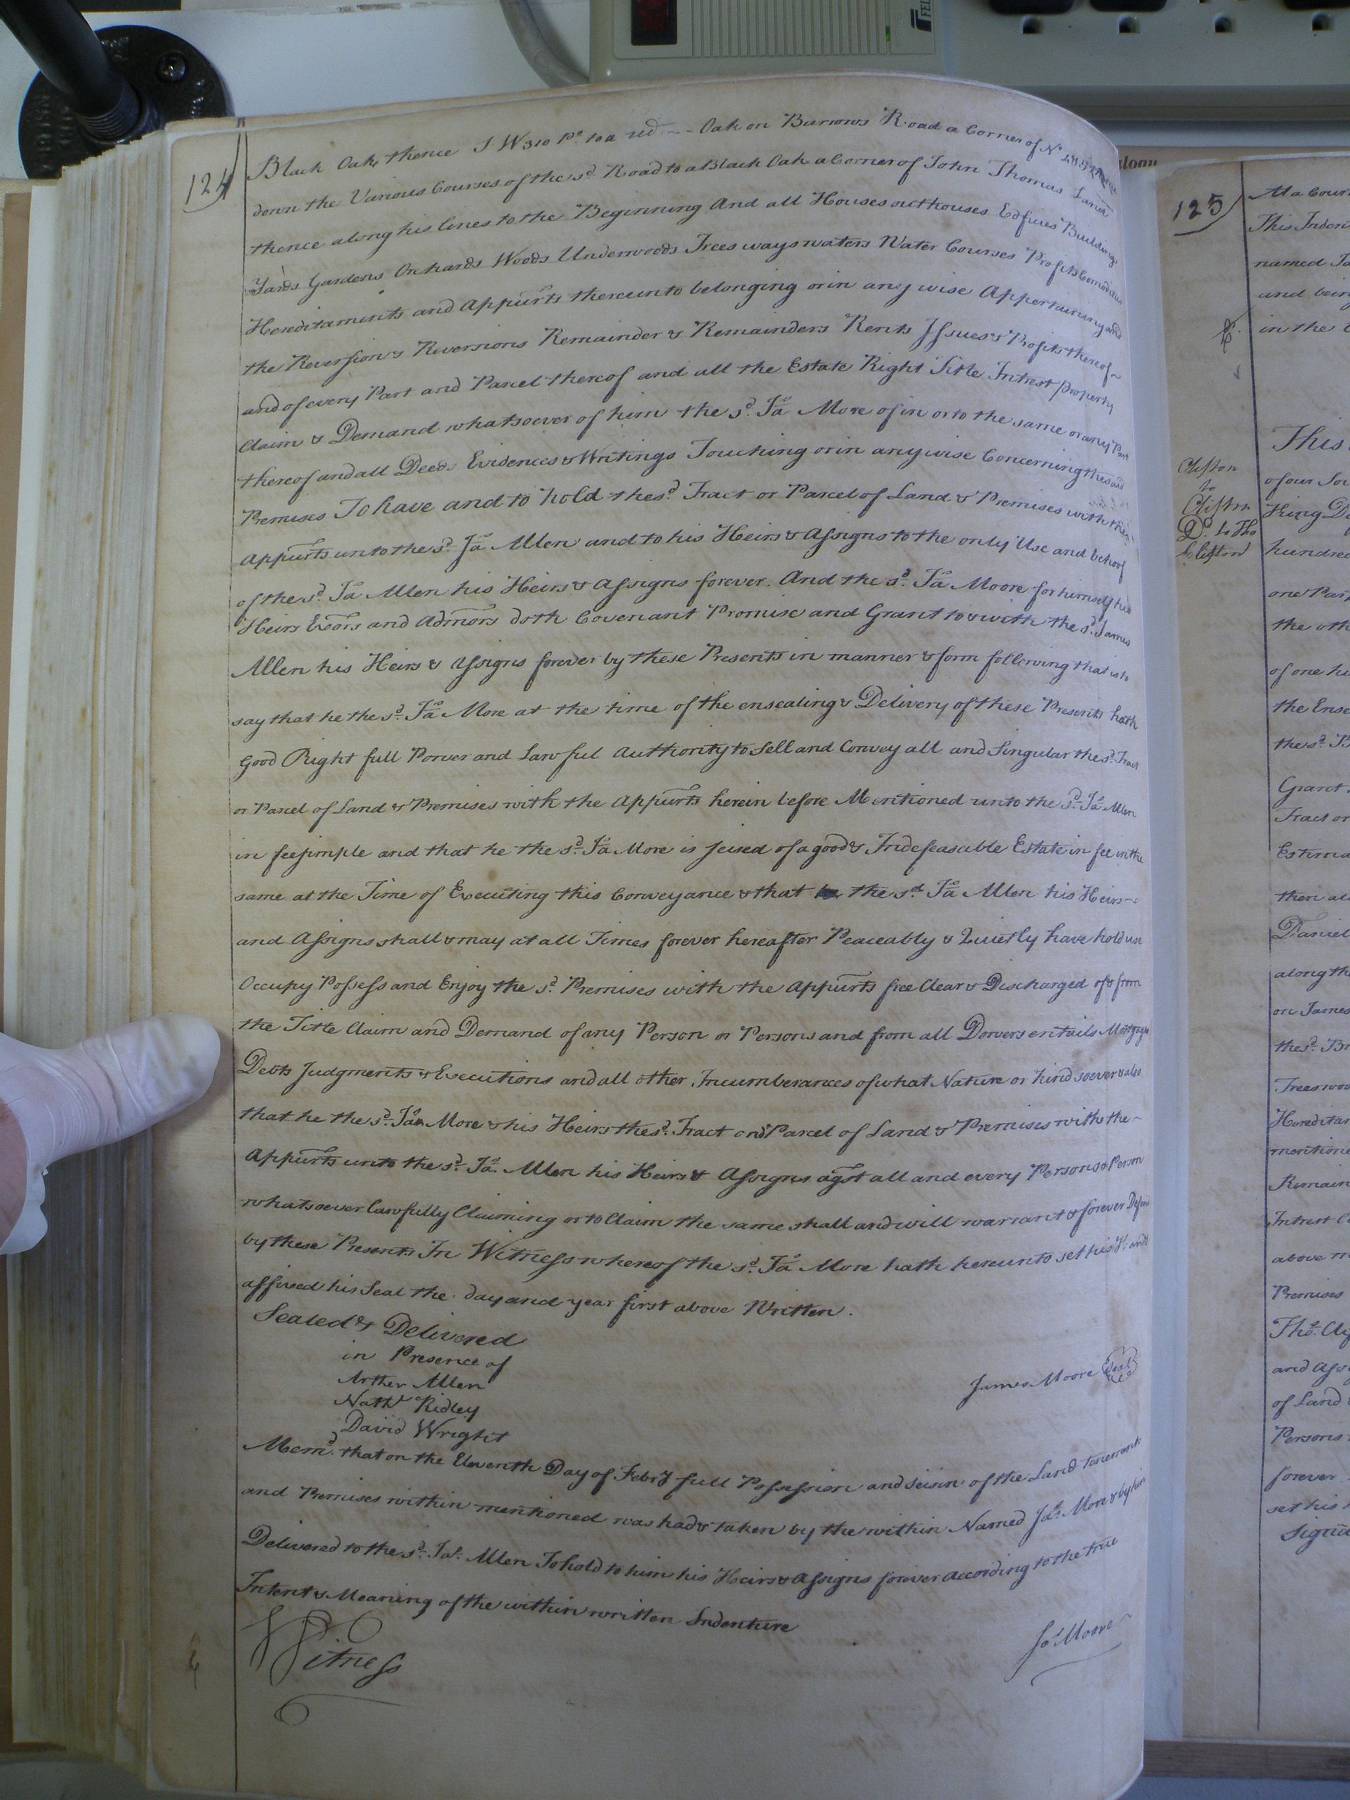 124
Black Oak thence S W 310 Ps. to a red -- Oak on Burrows Road a Corner of
down the Various Courses of the sd. Road to a Black Oak a Corner of John Thomas Land
thence along his lines to the Beginning And all Houses outhouses Edfices Buildings
Yards Gardens Orchards Woods Underwoods Trees ways waters Water Courses Profits
Hereditaments and Appurts thereunto belonging or in any wise Appertaining and
the Reversion & Reversions Remainder & Remainders Rents Issues & Profits thereof
and of every Part and Parcel thereof and all the Estate Right Title Intrest property
Claim & Demand whatsoever of him the sd. Jas. More of in or to the same or any Part
thereof and all Deeds Evidences & Writings Touching or in any wise Concerning the said
Premises To have and to hold the sd. Tract or Parcel of Land & Premises with their
Appurts unto the sd. Jas. Allen and to his Heirs & Assigns to the only Use and behoof
of the sd. Jas. Allen his Heirs & Assigns forever. And the sd. Jas. Moore for himself his
Heirs Exors and Admors doth Covenant Promise and Grant to & with the sd. James
Allen his Heirs & Assigns forever by these Presents in manner & form following that is to
say that he the sd. Jas. More at the time of the ensealing & Delivery of these Presents hath
Good Right full Power and Lawful Authority to Sell and Convey all and Singular the sd. Tract
or Parcel of Land & Premises with the Appurts herein before Mentioned unto the sd. Jas. Allen
in fee simple and that he the sd. Jas. More is seized of a good & Indefeasible Estate in fee in the
same at the Time of Executing this Conveyance & that the sd. Jas. Allen his Heirs
and Assigns shall & may at all Times forever hereafter Peaceably & Quietly have hold use
Occupy Possess and Enjoy the sd. Premises with the Appurts free Clear & Discharged of & from
the Title Claim and Demand of any Person or Persons and from all Dowers entails Mortgages
Debts Judgments & Executions and all other Incumberances of what Nature or kind soever & also
that he the sd. Jas. More & his Heirs the sd. Tract and Parcel of Land & Premises with the
Appurts unto the sd. Jas. Allen his Heirs & Assigns agst all and every Persons & Person
whatsoever Lawfully Claiming or to Claim the same shall and will warrant & forever Defend
by these Presents In Witness whereof the sd. Jas. More hath hereunto set his Hand &
affixed his Seal the day and year first above Written.
Sealed & Delivered
in Presence of
Arther Allen
Nathl Ridley
David Wright
James Moore Seal
Memd. that on the Eleventh Day of Febry full Possession and Seisin of the Land tenement
and Premises within mentioned was had & taken by the within Named Jas. More & by him
Delivered to the sd. Jas. Allen To hold to him his Heirs & Assigns forever according to the true
Intent & Meaning of the within written Indenture
Jas Moore
Witness
125
This Inden
named Ja
and bein
in the C
This
Clifton
to
Clifton
Do. to Tho
Clifton
of our Lo
King De
hundred
one Par
the oth
of one hu
the Ense
the sd. B
Grant
Tract or
Estima
then al
Daniel
along th
on James
the sd. Br
Trees woo
Hereditam
mentione
Remain
Intrest C
above m
Premises
Thos. Cly
and Ass
of Land
Persons
forever
set his
Signd